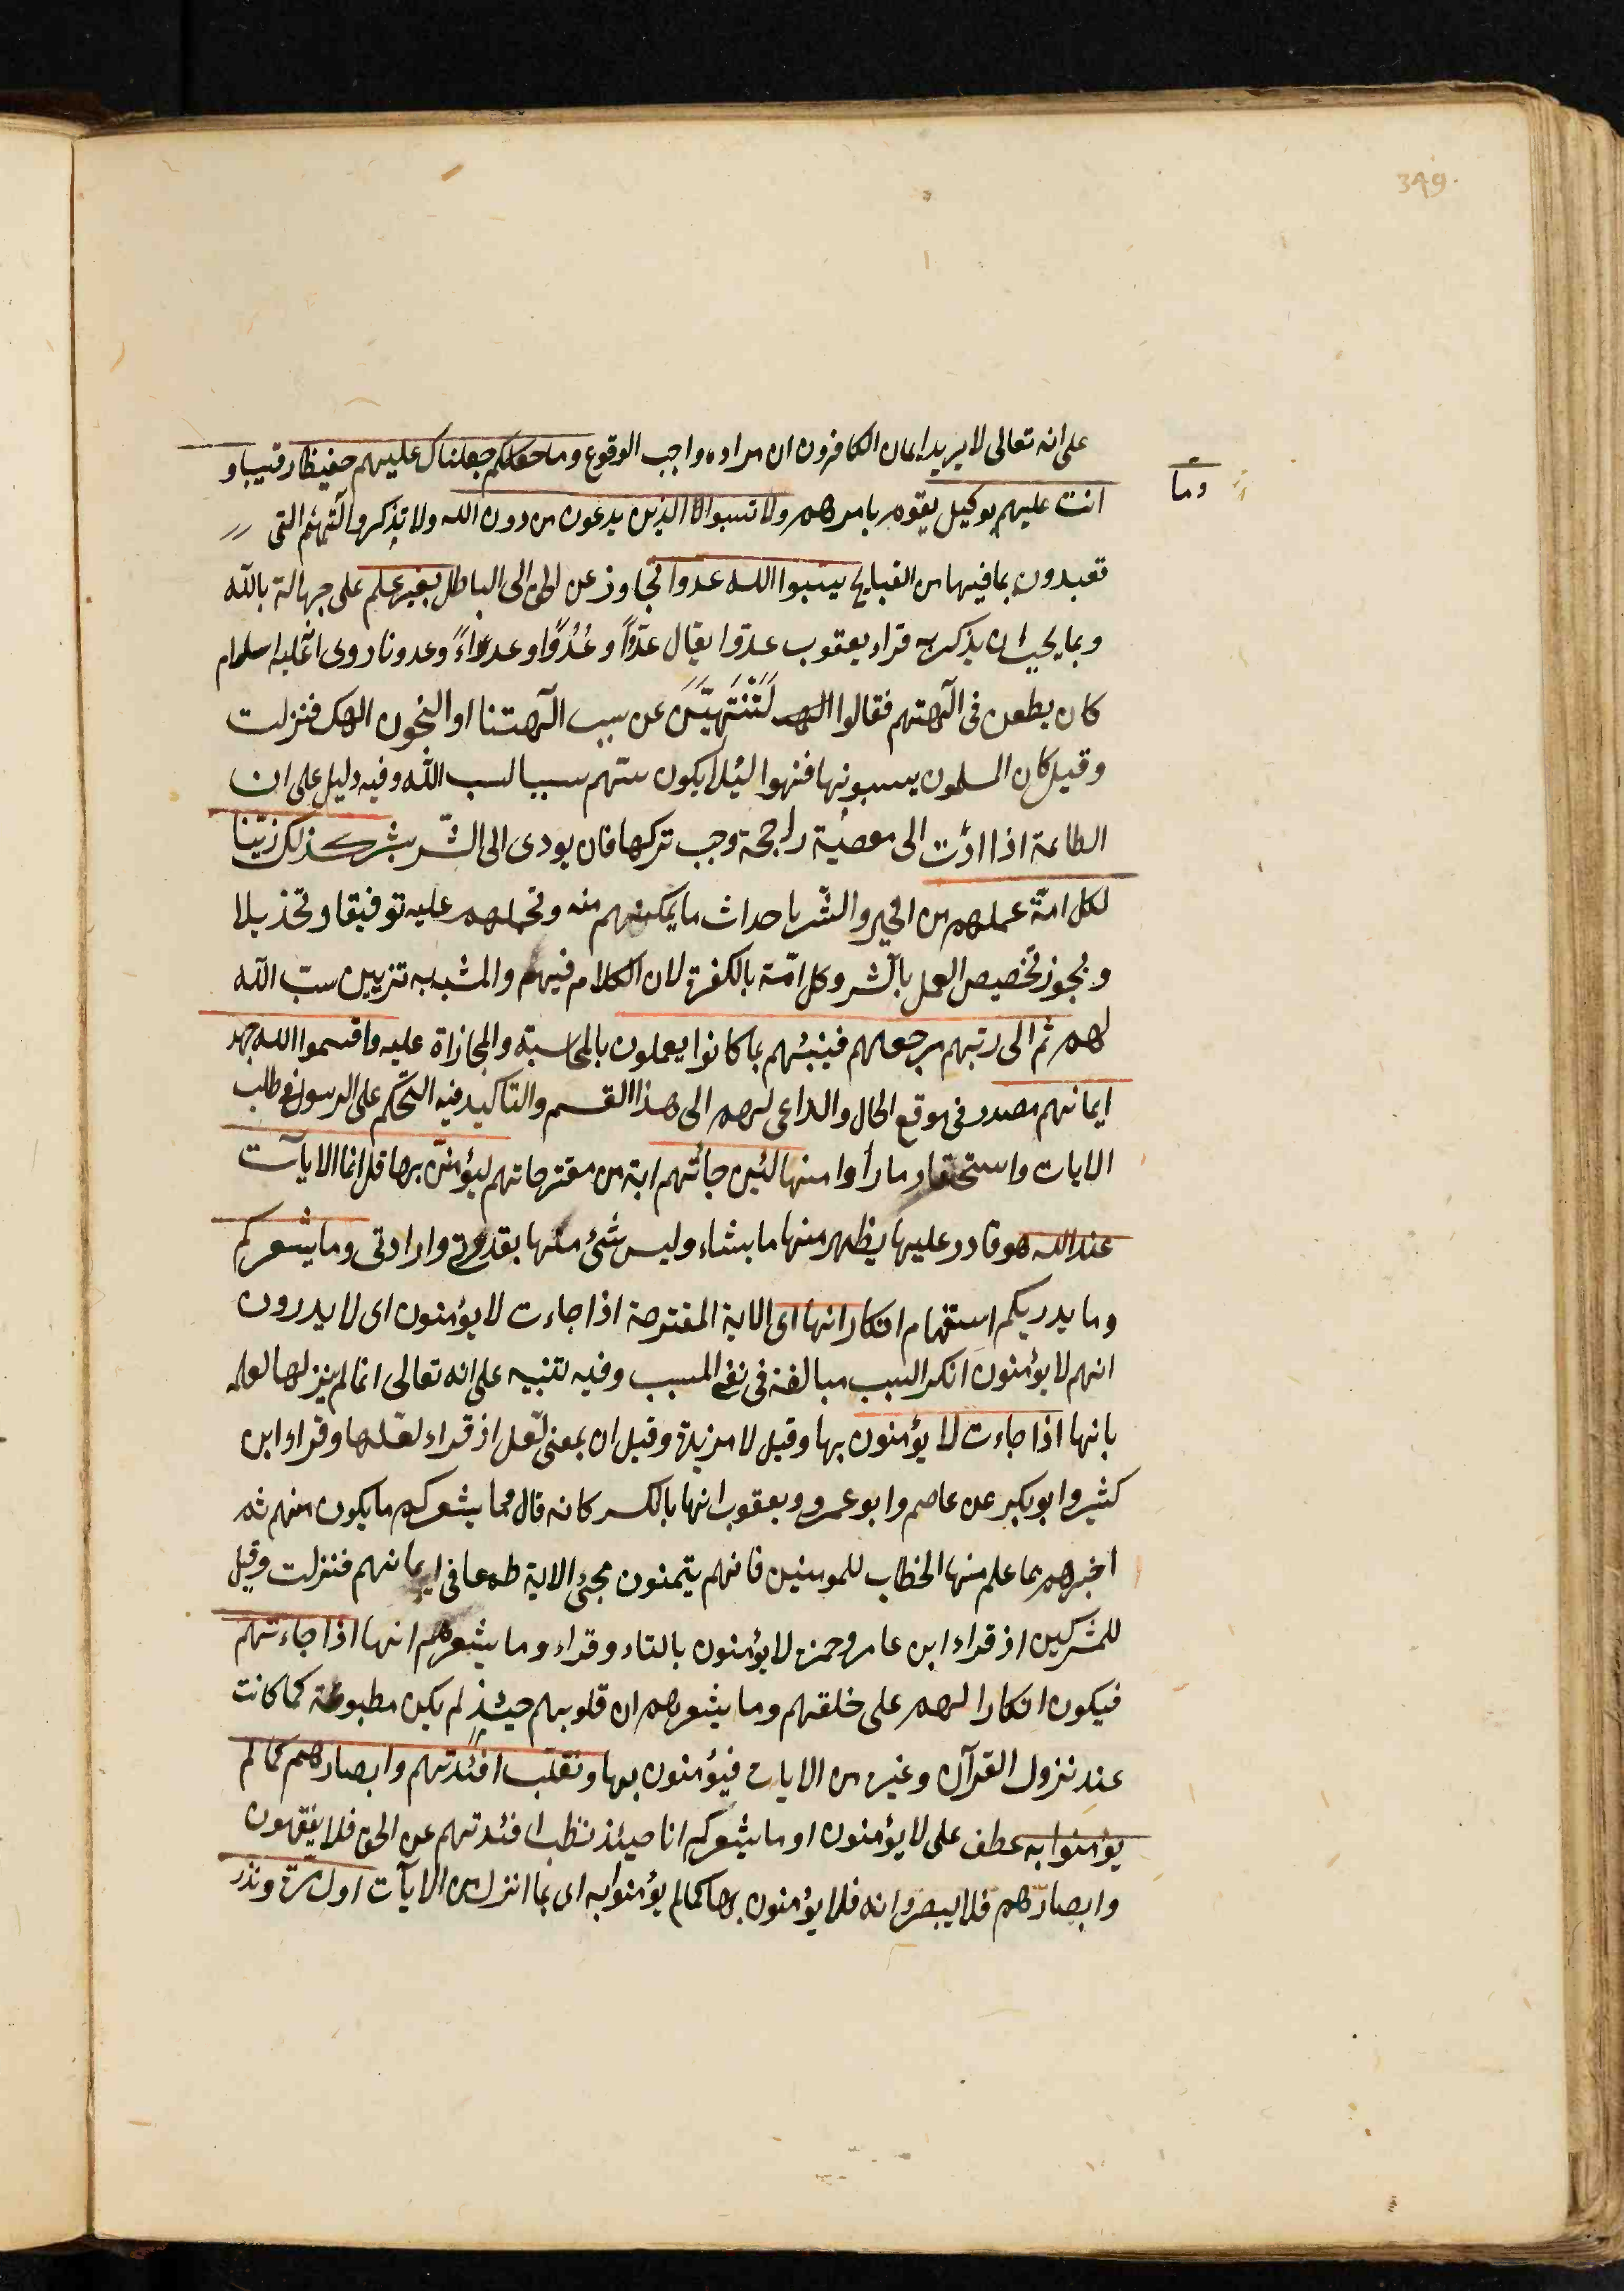 349
على انه تعالى لا يريد ايمان الكافرون ان مراده واجب الوقوع وما جعلناك عليهم حفيظا رقيبا و
وما
انت عليهم بوكيل يقوم بامرهم ولا تسبوا الذين يدعون من دون الله ولا تذكروا آلهتهم التى
تعبدون بما فيها من القبايح يسبوا الله عدوا تجاوز عن الحق الى الباطل بغير علم على جهالة بالله
وبما يجب ان يذكر به قراء يعقوب عدوّا يقال عدّا وعُدُوًا وعداءً وعدونا روى انه عليه السلام
كان يطعن فى آلهتهم فقالوا لَتَنْتَهِيَّنَ عن سب آلهتنا او النجون الهك فنزلت
وقيل كان المسلمون يسبونها فنهوا ليئلا يكون سبهم سببا لسب الله وفيه دليل على ان
الطاعة اذا ادّت الى معصية راجحة وجب تركها فان يودى الى الشّر بشر كذلك زيّنا
لكل امّة عملهم من الخير والشّر باحداث ما يمكنهم منه وتحملهم عليه توفيقا وتخذيلا
ويجوز تخصيص العمل بالشر وكل امّة بالكفرة لان الكلام فيهم والمشبه به تزيين سبّ الله
لهم ثم الى ربّهم مرجعهم فينبئهم بما كانوا يعملون بالمحاسبة والمجازاة عليه واقسموا الله جهد
ايمانهم مصدر فى موقع الحال والداعى لهم الى هذا القسم والتاكيد فيه التّحكم على الرسول فى طلب
الايات واستحقار ما رأوا منها لئين جائتهم اية من مقترحاتهم ليؤمننّ بها قل انما الايآت
عند الله هو قادر عليها يظهر منها ما يشاء وليس شئ منها بقدرتى وارادتى وما يشعركم
وما يدريكم استفهام انكار انها اى الاية المقترحة اذا جاءت لا يؤمنون اى لا يدرون
انهم لا يؤمنون انكر السبب مبالغة فى نفى المسبب وفيه تنبيه على انه تعالى انما لم ينزلها لعلمه
بانها اذا جاءت لا يؤمنون بها وقيل لا مزيدة وقيل ان بمعنى لعّل اذ قراء لعّلها وقراء ابن
كثير وابو بكر عن عاصم وابو عمرو ويعقوب انها بالكسر كانه قال وما يشعركم ما يكون منهم ثم
اخبرهم بما علم منها الخطاب للمومنين فانهم يتمنون مجئ الاية طمعا فى ايمانهم فنزلت وقيل
للمشركين اذ قراء ابن عامر وحمزة لا يؤمنون بالتاء وقراء وما يشعرهم انها اذا جاءتهم
فيكون انكارا لهم على خلقهم وما يشعرهم ان قلوبهم حيئذ لم يكن مطبوعة كما كانت
عند نزول القرآن وغيره من الايات فيؤمنون بها ونقلّب افئدتهم وابصارهم كما لم
يؤمنوا به عطف على لا يؤمنون او ما يشعركم انا حيئذ نقلب افئدتهم عن الحق فلا يفقهون
وابصارهم فلا يبصرونه فلا يؤمنون بها كما لم يؤمنوا به اى بما انزل من الايآت اول مرة ونذر